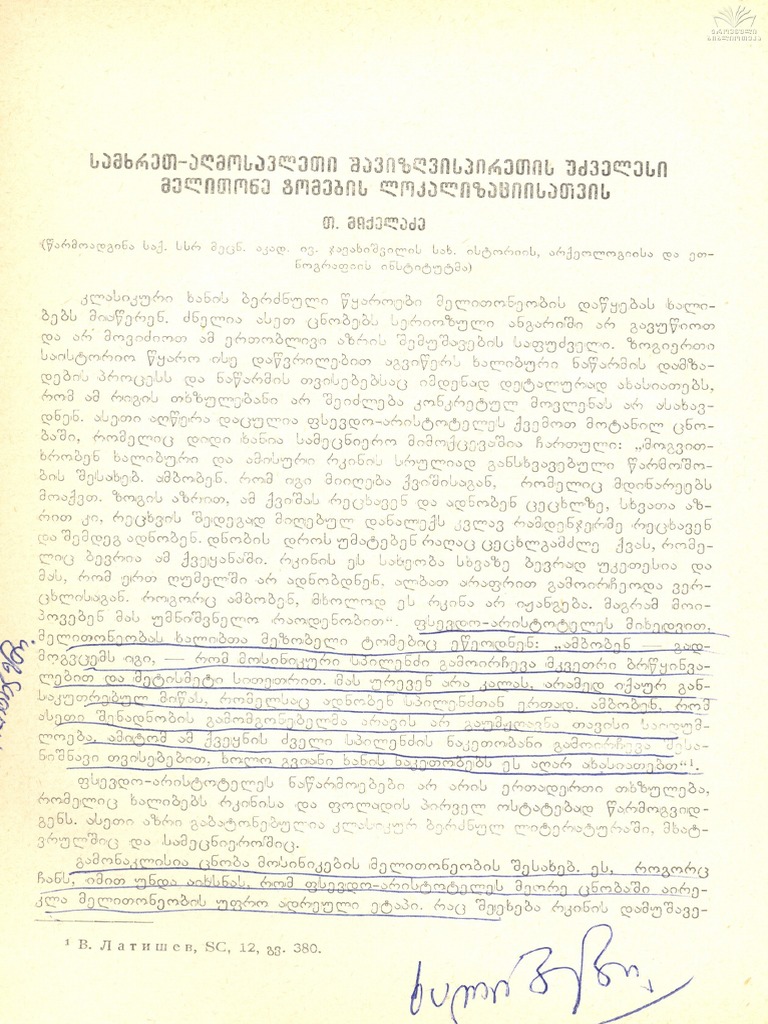 ეროვნული
ბიბლიოთეკა
სამხრეთ-აღმოსავლეთი შავიზღვისპირეთის უძველესი
მელითონე ტომების ლოკალიზაციისათვის
თ. მიქელაძე
(წარმოადგინა საქ. სსრ მეცნ. აკად. ივ. ჯავახიშვილის სახ. ისტორიის, არქეოლოგიისა და ეთ-
ნოგრაფიის ინსტიტუტმა)
კლასიკური ხანის ბერძნული წყაროები მელითონეობის დაწყებას ხალი-
ბებს მიაწერენ. ძნელია ასეთ ცნობებს სერიოზული ანგარიში არ გავუწიოთ
და არ მოვიძიოთ ამ ერთობლივი აზრის შემუშავების საფუძველი. ზოგიერთი
საისტორიო წყარო ისე დაწვრილებით აგვიწერს ხალიბური ნაწარმის დამზა-
დების პროცესს და ნაწარმის თვისებებსაც იმდენად დეტალურად ახასიათებს,
რომ ამ რიგის თხზულებანი არ შეიძლება კონკრეტულ მოვლენას არ ასახავ-
დნენ. ასეთი აღწერა დაცულია ფსევდო-არისტოტელეს ქვემოთ მოტანილ ცნო-
ბაში, რომელიც დიდი ხანია სამეცნიერო მიმოქცევაშია ჩართული: „მოგვით-
ხრობენ ხალიბური და ამისური რკინის სრულიად განსხვავებული წარმოშო-
ბის შესახებ. ამბობენ, რომ იგი მიიღება ქვიშისაგან, რომელიც მდინარეებს
მოაქვთ. ზოგის აზრით, ამ ქვიშას რეცხავენ და ადნობენ ცეცხლზე, სხვათა აზ-
რით კი, რეცხვის შედეგად მიღებულ დანალექს კვლავ რამდენჯერმე რეცხავენ
და შემდეგ ადნობენ. დნობის დროს უმატებენ რაღაც ცეცხლგამძლე ქვას, რომე-
ლიც ბევრია ამ ქვეყანაში. რკინის ეს სახეობა სხვაზე ბევრად უკეთესია და
მას, რომ ერთ ღუმელში არ ადნობდნენ, ალბათ არაფრით გამოირჩეოდა ვერ-
ცხლისაგან. როგორც ამბობენ, მხოლოდ ეს რკინა არ იჟანგება. მაგრამ მოი-
პოვებენ მას უმნიშვნელო რაოდენობით“. ფსევდო-არისტოტელეს მიხედვით,
მელითონეობას ხალიბთა მეზობელი ტომებიც ეწეოდნენ: „ამბობენ — გად-
მოგვცემს იგი, — რომ მოსინიკური სპილენძი გამოირჩევა მკვეთრი ბრწყინვა-
ლებით და მეტისმეტი სითეთრით. მას ურევენ არა კალას, არამედ იქაურ გან-
საკუთრებულ მიწას, რომელსაც ადნობენ სპილენძთან ერთად. ამბობენ, რომ
ასეთი შენადნობის გამომგონებელმა არავის არ გაუმჟღავნა თავისი საიდუმ-
ლოება, ამიტომ ამ ქვეყნის ძველი სპილენძის ნაკეთობანი გამოირჩევა შესა-
ნიშნავი თვისებებით, ხოლო გვიანი ხანის ნაკეთობებს ეს აღარ ახასიათებთ“¹.
ფსევდო-არისტოტელეს ნაწარმოებები არ არის ერთადერთი თხზულება,
რომელიც ხალიბებს რკინისა და ფოლადის პირველ ოსტატებად წარმოგვიდ-
გენს. ასეთი აზრი გაბატონებულია კლასიკურ ბერძნულ ლიტერატურაში, მხატ-
ვრულშიც და სამეცნიეროშიც.
გამონაკლისია ცნობა მოსინიკების მელითონეობის შესახებ. ეს, როგორც
ჩანს, იმით უნდა აიხსნას, რომ ფსევდო-არისტოტელეს მეორე ცნობაში აირე-
კლა მელითონეობის უფრო ადრეული ეტაპი. რაც შეეხება რკინის დამუშავე-
¹ В. Латишев, SC, 12, გვ. 380.